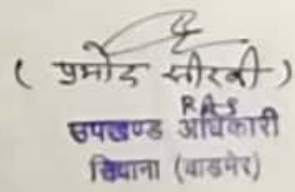 ( प्रमोद सीरवी )
RAS
उपखण्ड अधिकारी
सिवाना (बाडमेर)